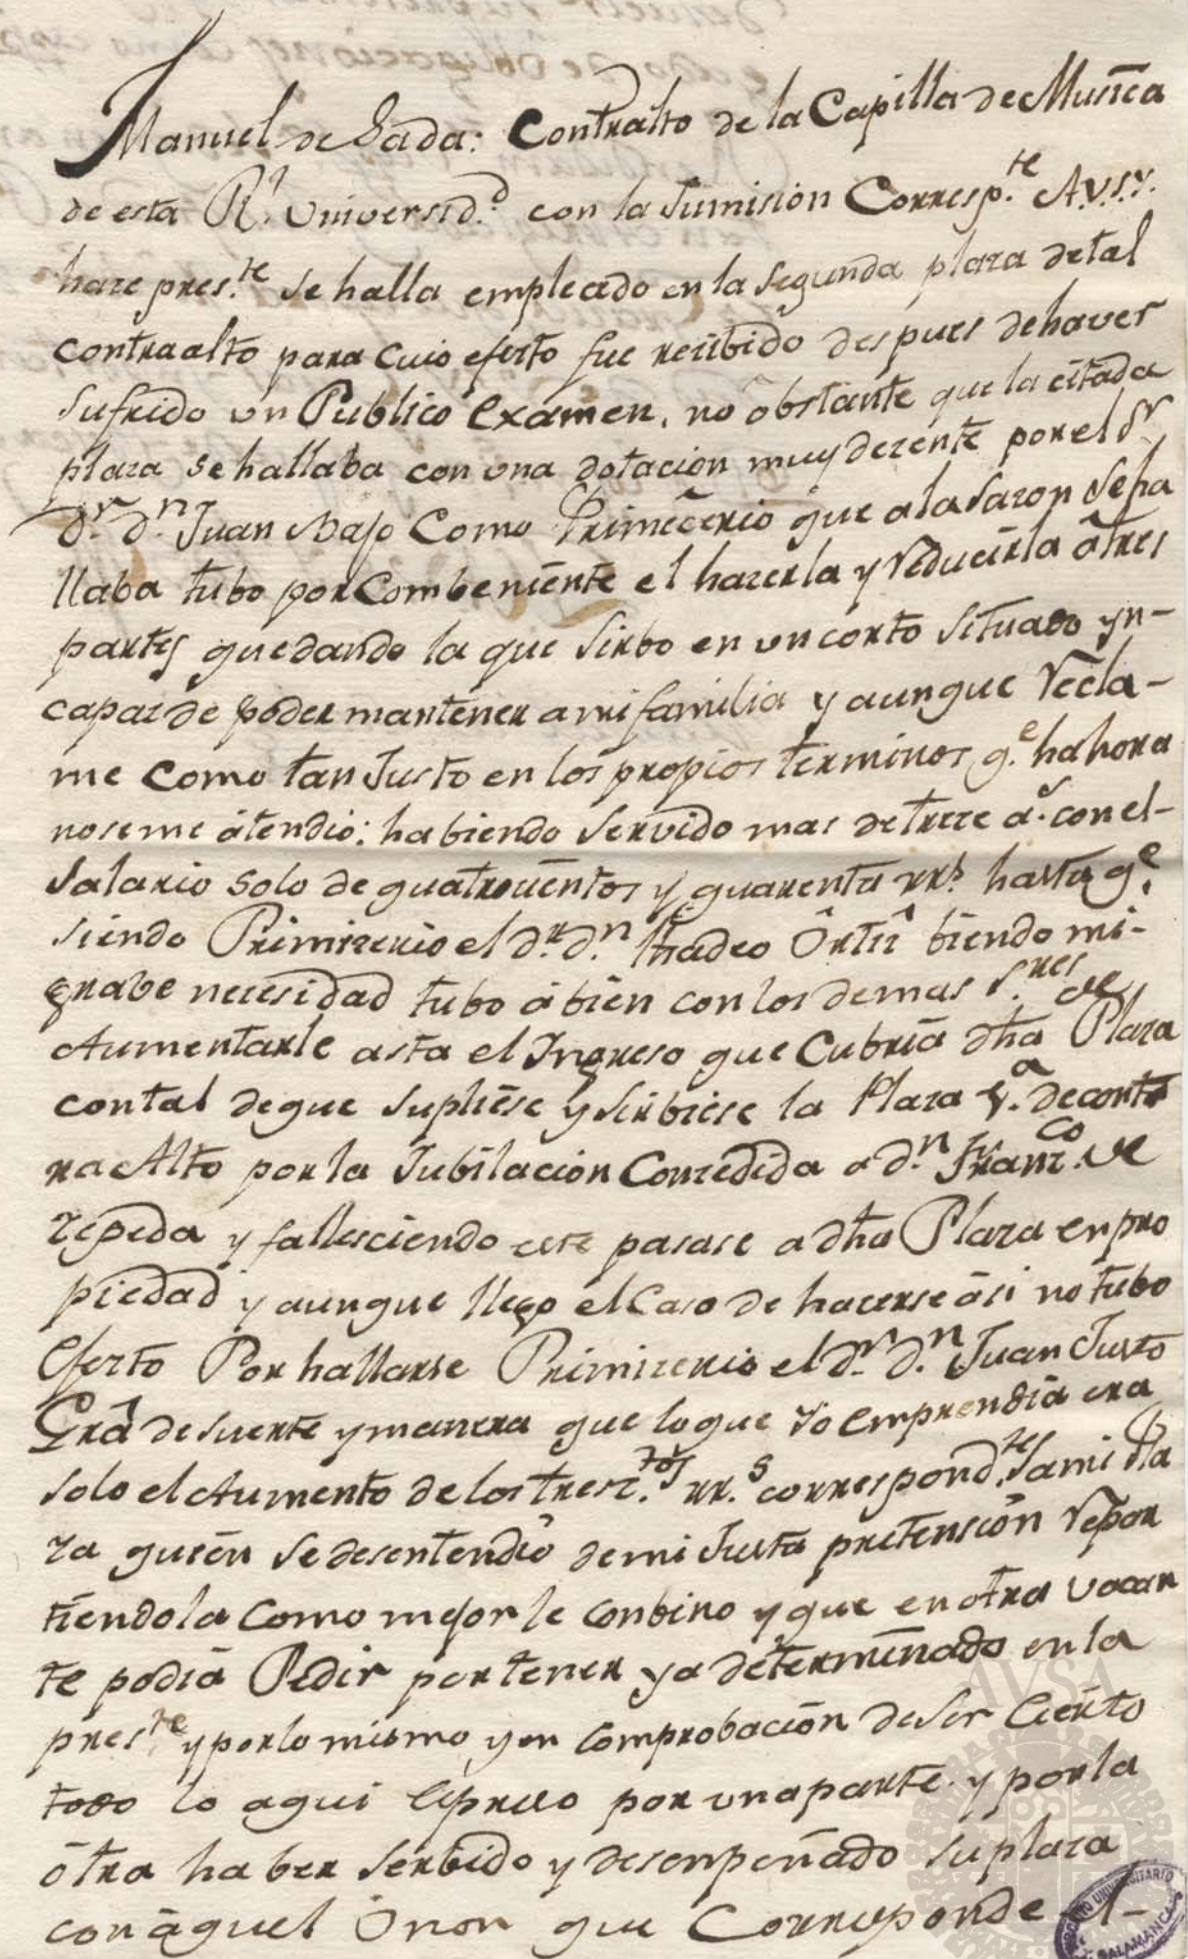 Manuel de Sada: Contralto de la Capilla de Musica
de esta Rl. Universid.d con la sumision Corresp.te A.V.S.Y.
haze pres.te se halla empleado en la segunda plaza de tal
contraalto para cuio efecto fue recibido despues de haver
sufrido un Publico examen, no obstante que la citada
plaza se hallaba con una dotacion muy dezente por el Sr
Dr. Dn. Juan Bajo Como Primecerio que a la sazon se ha
llaba tubo por combeniente el hazerla y reducirla a tres
partes quedando la que sirbo en un corto situado yn-
capaz de poder mantener a mi familia y aunque recla-
me como tan Justo en los propios terminos q.e hahora
no se me atendio: habiendo servido mas de treze a.s con el-
salario solo de quatrocientos y quarenta rr.s hasta q.e
siendo Primizerio el Dr. Dn. thadeo Ortiz biendo mi-
grabe necesidad tubo a bien con los demas S.res de
Aumentarle asta el Ingreso que Cubria dha Plaza
con tal de que supliese y sirbiese la Plaza 1.a de cont
ra Alto por la Jubilacion Conzedida a Dn. Franz.co de
zepeda y fallesciendo este pasase a dha Plaza en pro
piedad y aunque llego el Caso de hacerse asi no tubo
efecto Por hallarse Primizerio el Dr. Dn. Juan Justo
Gra de suerte y manera que lo que Yo emprendia era
solo el Aumento de los tresz.tos rr.s correspond.tes a mi Pla
za quien se desentendio de mi Justa pretension repor
tiendola Como mejor le conbino y que en otra vacan
te podia Pedir por tener ya determinado en la
pres.te y por lo mismo y en comprobacion de ser Cierto
todo lo aqui espreso por una parte y por la
otra haber serbido y desenpeñado su plaza
con aquel onor que Corresponde A-
AVSA